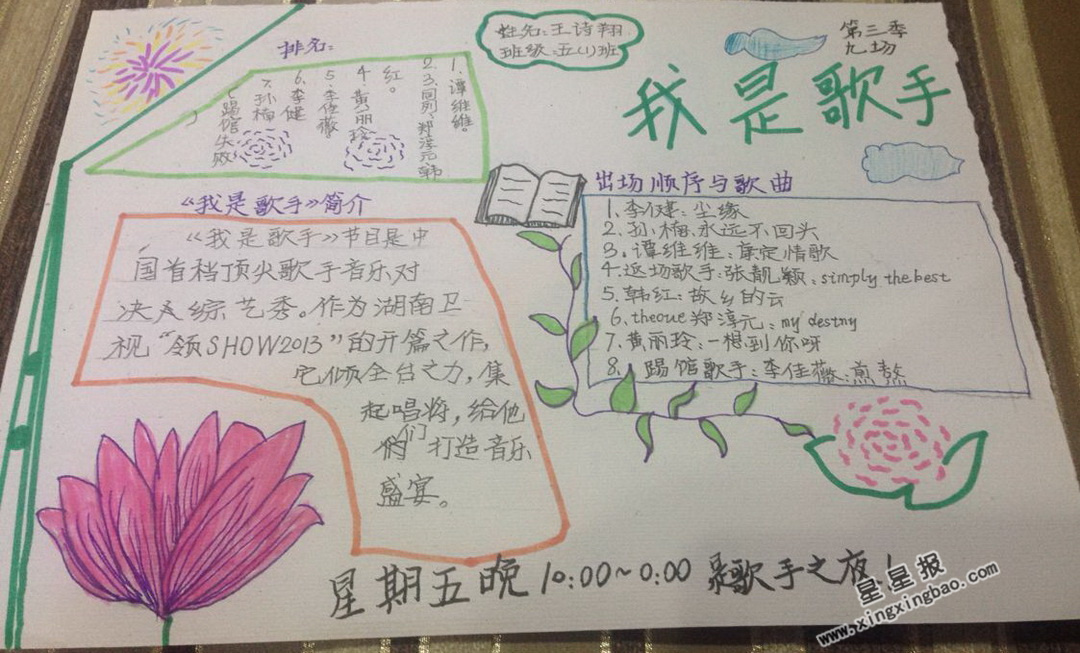 姓名:王诗翔
班级:五(1)班
第三季
九场
我是歌手
排名:
1、谭维维。
2、
3、同列、郑淳元韩
红。
4、黄丽玲
5、李佳薇
6、李健
7、孙楠
(踢馆失败)
《我是歌手》简介
《我是歌手》节目是中
国首档顶尖歌手音乐对
决综艺秀。作为湖南卫
视“领SHOW2013”的开篇之作,
它倾全台之力,集
起唱将,给他
们打造音乐
盛宴。
出场顺序与歌曲
1、李健:尘缘
2、孙楠、永远不回头
3、谭维维:康定情歌
4、返场歌手:张靓颖:simply the best
5、韩红:故乡的云
6、theoue郑淳元:my destny
7、黄丽玲:一想到你呀
8、踢馆歌手:李佳薇:煎熬
星期五晚10:00~0:00 是歌手之夜!
星星报
www.xingxingbao.com